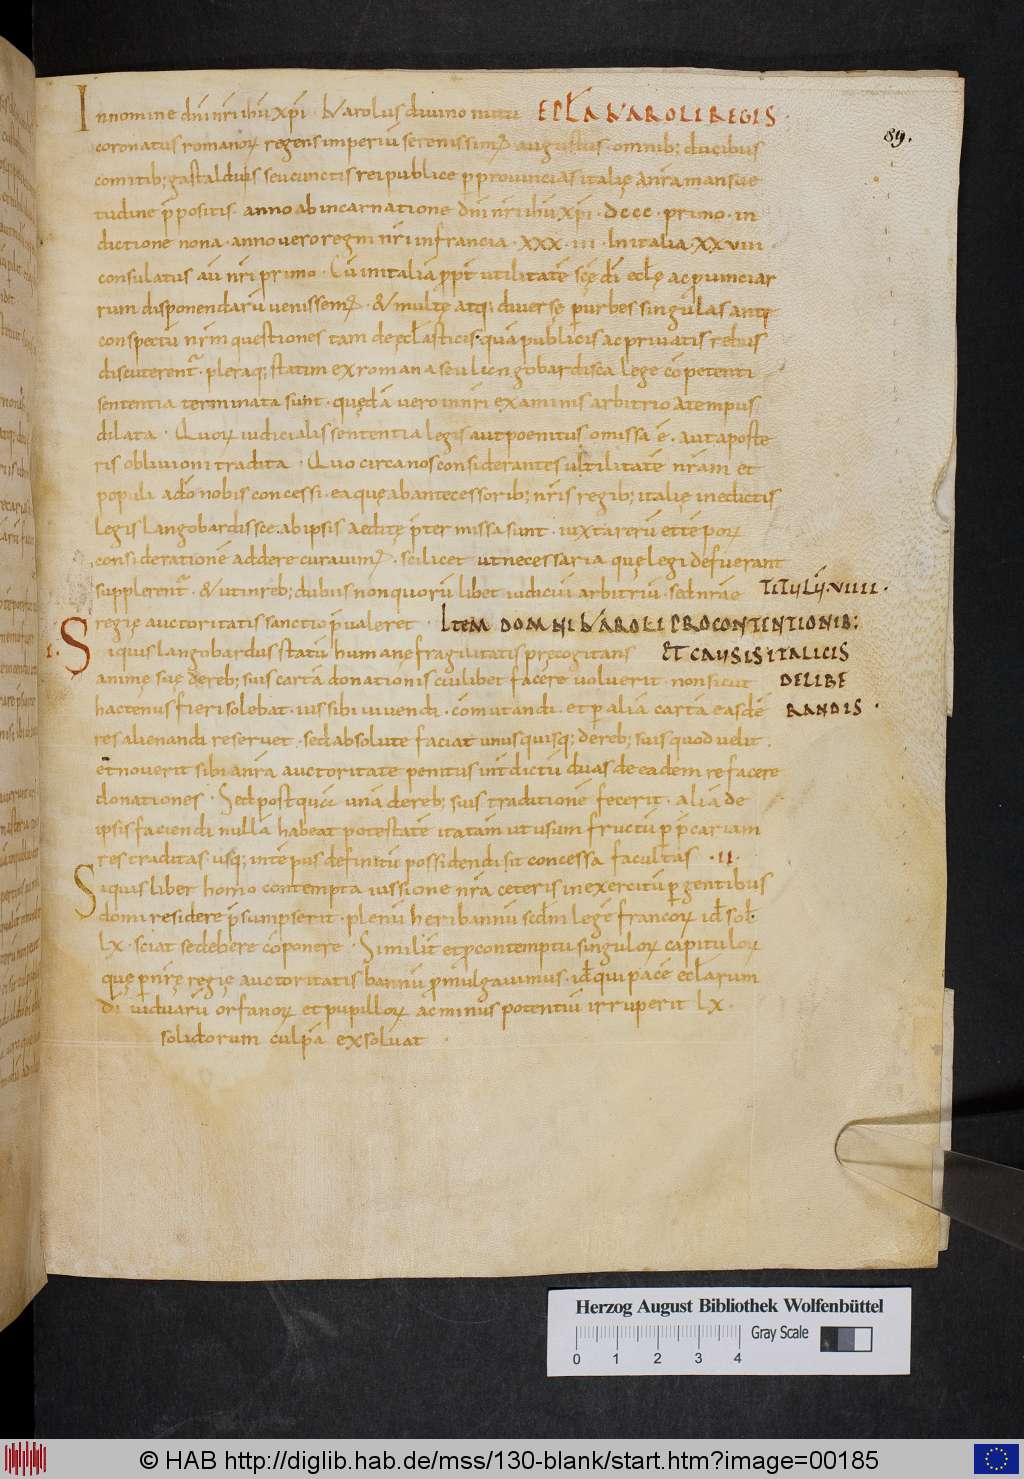 In nomine dn̄i nr̄i ihū xp̄i · karolus divino nutu EPL̄A KAROLI REGIS ·
89.
coronatus romanoꝝ regens imperiū serenissimꝰ augustus · omnib; ducibus
comitib; gastaldiis seu cunctis rei publice ꝑ provincias italię a nr̄a mansue
tudine p̄positis · anno ab incarnatione dn̄i nr̄i ihū xp̄i · dccc · primo · in
dictione nona · anno vero regni nr̄i in francia · XXX · III · In italia · XXVIII ·
consulatus aū nr̄i primo · Cū in italiā ꝓpt̄ utilitatē scę dī eclę ac ꝓvinciar
rum disponendarū venissemꝰ · & multę atq; diversę ꝑ urbes singulas ante
conspectū nr̄m questiones tam de ęclasticis · quā publicis ac privatis rebus
discuterent᷑ · pleraq; statim ex romana seu langobardisca lege cōpetenti
sententia terminata sunt · quędā vero in nr̄i examinis arbitrio a tempus
dilata · Quoꝝ iudicialis sententia legis aut poenitus omissa ē · aut a poste
ris oblivioni tradita · Quo circa nos considerantes utilitatē nr̄am et
populi a dō nobis concessi · ea quę ab antecessorib; nr̄is regib; italię in edictis
legis langobardisce ab ipsis aeditę p̄termissa sunt · iuxta rerū et tēpoꝝ
considerationē addere curavimꝰ · scilicet ut necessaria quę legi defuerant
supplerent᷑ · & ut in reb; dubiis non quorū libet iudicū arbitriū · sed nr̄ae TITULI · VIIII ·
regię auctoritatis sanctio p̄valeret · ITEM DOMNI KAROLI PRO CONTENTIONIB:
I. Si quis langobardus statū humanę fragilitatis pręcogitans ET CAUSIS ITALICIS
animę suę de reb; suis cartā donationis cuilibet facere voluerit · non sicut DELIBE
hactenus fieri solebat · ius sibi vivendi · cōmutandi · et ꝑ aliā cartā easdē RANDIS ·
res alienandi reservet · sed absolute faciat unusquisq; de reb; suis quod velit ·
et noverit sibi a nr̄a auctoritate penitus int̄dictū duas de eadem re facere
donationes · Sed postquā unā de reb; suis traditionē fecerit · aliā de
ipsis faciendi nullā habeat potestatē ita tam̄ ut usum fructū ꝑ p̄cariam
res traditas · usq; in tēpus definitū possidendi sit concessa facultas · II ·
Si quis liber homo contempta iussione nr̄a ceteris in exercitū ꝑgentibus
domi residere p̄sumpserit · plenū heribannū scd̄m legē francoꝝ id̄ sol̄
LX · sciat se debere cōponere · Similit̄ et ꝓ contemptu singuloꝝ capituloꝝ
quę ꝑ nr̄ę regię auctoritatis bannū ꝓmulgavimus · id̄ qui pacē ecl̄arum
dī viduarū orfanoꝝ et pupilloꝝ ac minus potentiū irruperit LX ·
solidorum culpā exsolvat ·
Herzog August Bibliothek Wolfenbüttel
Gray Scale
0 1 2 3 4
© HAB http://diglib.hab.de/mss/130-blank/start.htm?image=00185